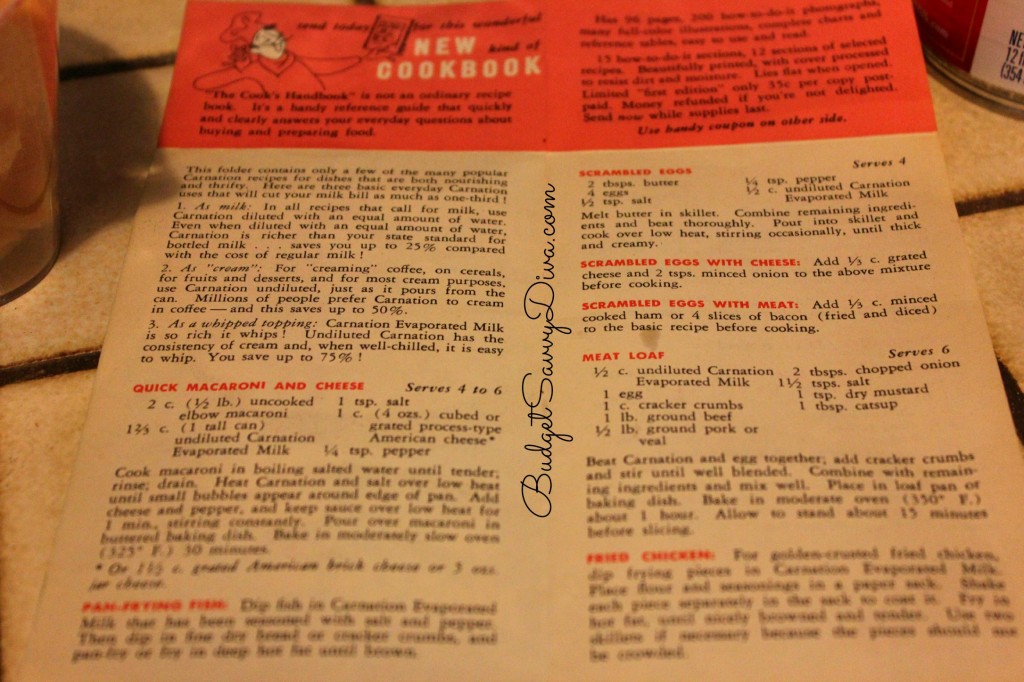 send today for this wonderful
NEW kind of
COOKBOOK
"The Cook's Handbook" is not an ordinary recipe
book. It's a handy reference guide that quickly
and clearly answers your everyday questions about
buying and preparing food.
Has 96 pages, 200 how-to-do-it photographs,
many full-color illustrations, complete charts and
reference tables, easy to use and read.
15 how-to-do-it sections, 12 sections of selected
recipes. Beautifully printed, with cover processed
to resist dirt and moisture. Lies flat when opened.
Limited "first edition" only 35c per copy post-
paid. Money refunded if you're not delighted.
Send now while supplies last.
Use handy coupon on other side.
This folder contains only a few of the many popular
Carnation recipes for dishes that are both nourishing
and thrifty. Here are three basic everyday Carnation
uses that will cut your milk bill as much as one-third!
1. As milk: In all recipes that call for milk, use
Carnation diluted with an equal amount of water.
Even when diluted with an equal amount of water,
Carnation is richer than your state standard for
bottled milk . . . saves you up to 25% compared
with the cost of regular milk!
2. As "cream": For "creaming" coffee, on cereals,
for fruits and desserts, and for most cream purposes,
use Carnation undiluted, just as it pours from the
can. Millions of people prefer Carnation to cream
in coffee — and this saves up to 50%.
3. As a whipped topping: Carnation Evaporated Milk
is so rich it whips! Undiluted Carnation has the
consistency of cream and, when well-chilled, it is easy
to whip. You save up to 75%!
QUICK MACARONI AND CHEESE Serves 4 to 6
2 c. (½ lb.) uncooked 1 tsp. salt
elbow macaroni 1 c. (4 ozs.) cubed or
1⅔ c. (1 tall can) grated process-type
undiluted Carnation American cheese*
Evaporated Milk ¼ tsp. pepper
Cook macaroni in boiling salted water until tender;
rinse; drain. Heat Carnation and salt over low heat
until small bubbles appear around edge of pan. Add
cheese and pepper, and keep sauce over low heat for
1 min., stirring constantly. Pour over macaroni in
buttered baking dish. Bake in moderately slow oven
(325° F.) 30 minutes.
* Or 1½ c. grated American brick cheese or 3 ozs.
jar cheese.
PAN-FRYING FISH: Dip fish in Carnation Evaporated
Milk that has been seasoned with salt and pepper.
Then dip in fine dry bread or cracker crumbs, and
pan-fry or fry in deep hot fat until brown.
BudgetSavvyDiva.com
SCRAMBLED EGGS Serves 4
2 tbsps. butter ¼ tsp. pepper
4 eggs ½ c. undiluted Carnation
½ tsp. salt Evaporated Milk
Melt butter in skillet. Combine remaining ingredi-
ents and beat thoroughly. Pour into skillet and
cook over low heat, stirring occasionally, until thick
and creamy.
SCRAMBLED EGGS WITH CHEESE: Add ⅓ c. grated
cheese and 2 tsps. minced onion to the above mixture
before cooking.
SCRAMBLED EGGS WITH MEAT: Add ⅓ c. minced
cooked ham or 4 slices of bacon (fried and diced)
to the basic recipe before cooking.
MEAT LOAF Serves 6
½ c. undiluted Carnation 2 tbsps. chopped onion
Evaporated Milk 1½ tsps. salt
1 egg 1 tsp. dry mustard
1 c. cracker crumbs 1 tbsp. catsup
1 lb. ground beef
½ lb. ground pork or
veal
Beat Carnation and egg together; add cracker crumbs
and stir until well blended. Combine with remain-
ing ingredients and mix well. Place in loaf pan or
baking dish. Bake in moderate oven (350° F.)
about 1 hour. Allow to stand about 15 minutes
before slicing.
FRIED CHICKEN: For golden-crusted fried chicken,
dip frying pieces in Carnation Evaporated Milk.
Place flour and seasonings in a paper sack. Shake
each piece separately in the sack to coat it. Fry in
hot fat, until nicely browned and tender. Use two
skillets if necessary because the pieces should not
be crowded.
NE
12 
(354